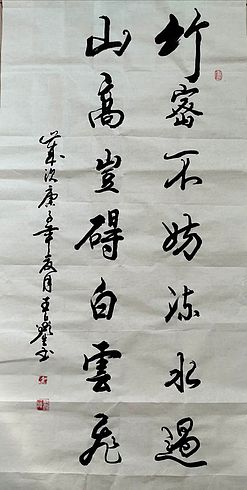 竹密不妨流水過
山高豈碍白雲飛
歲次庚子年夏月